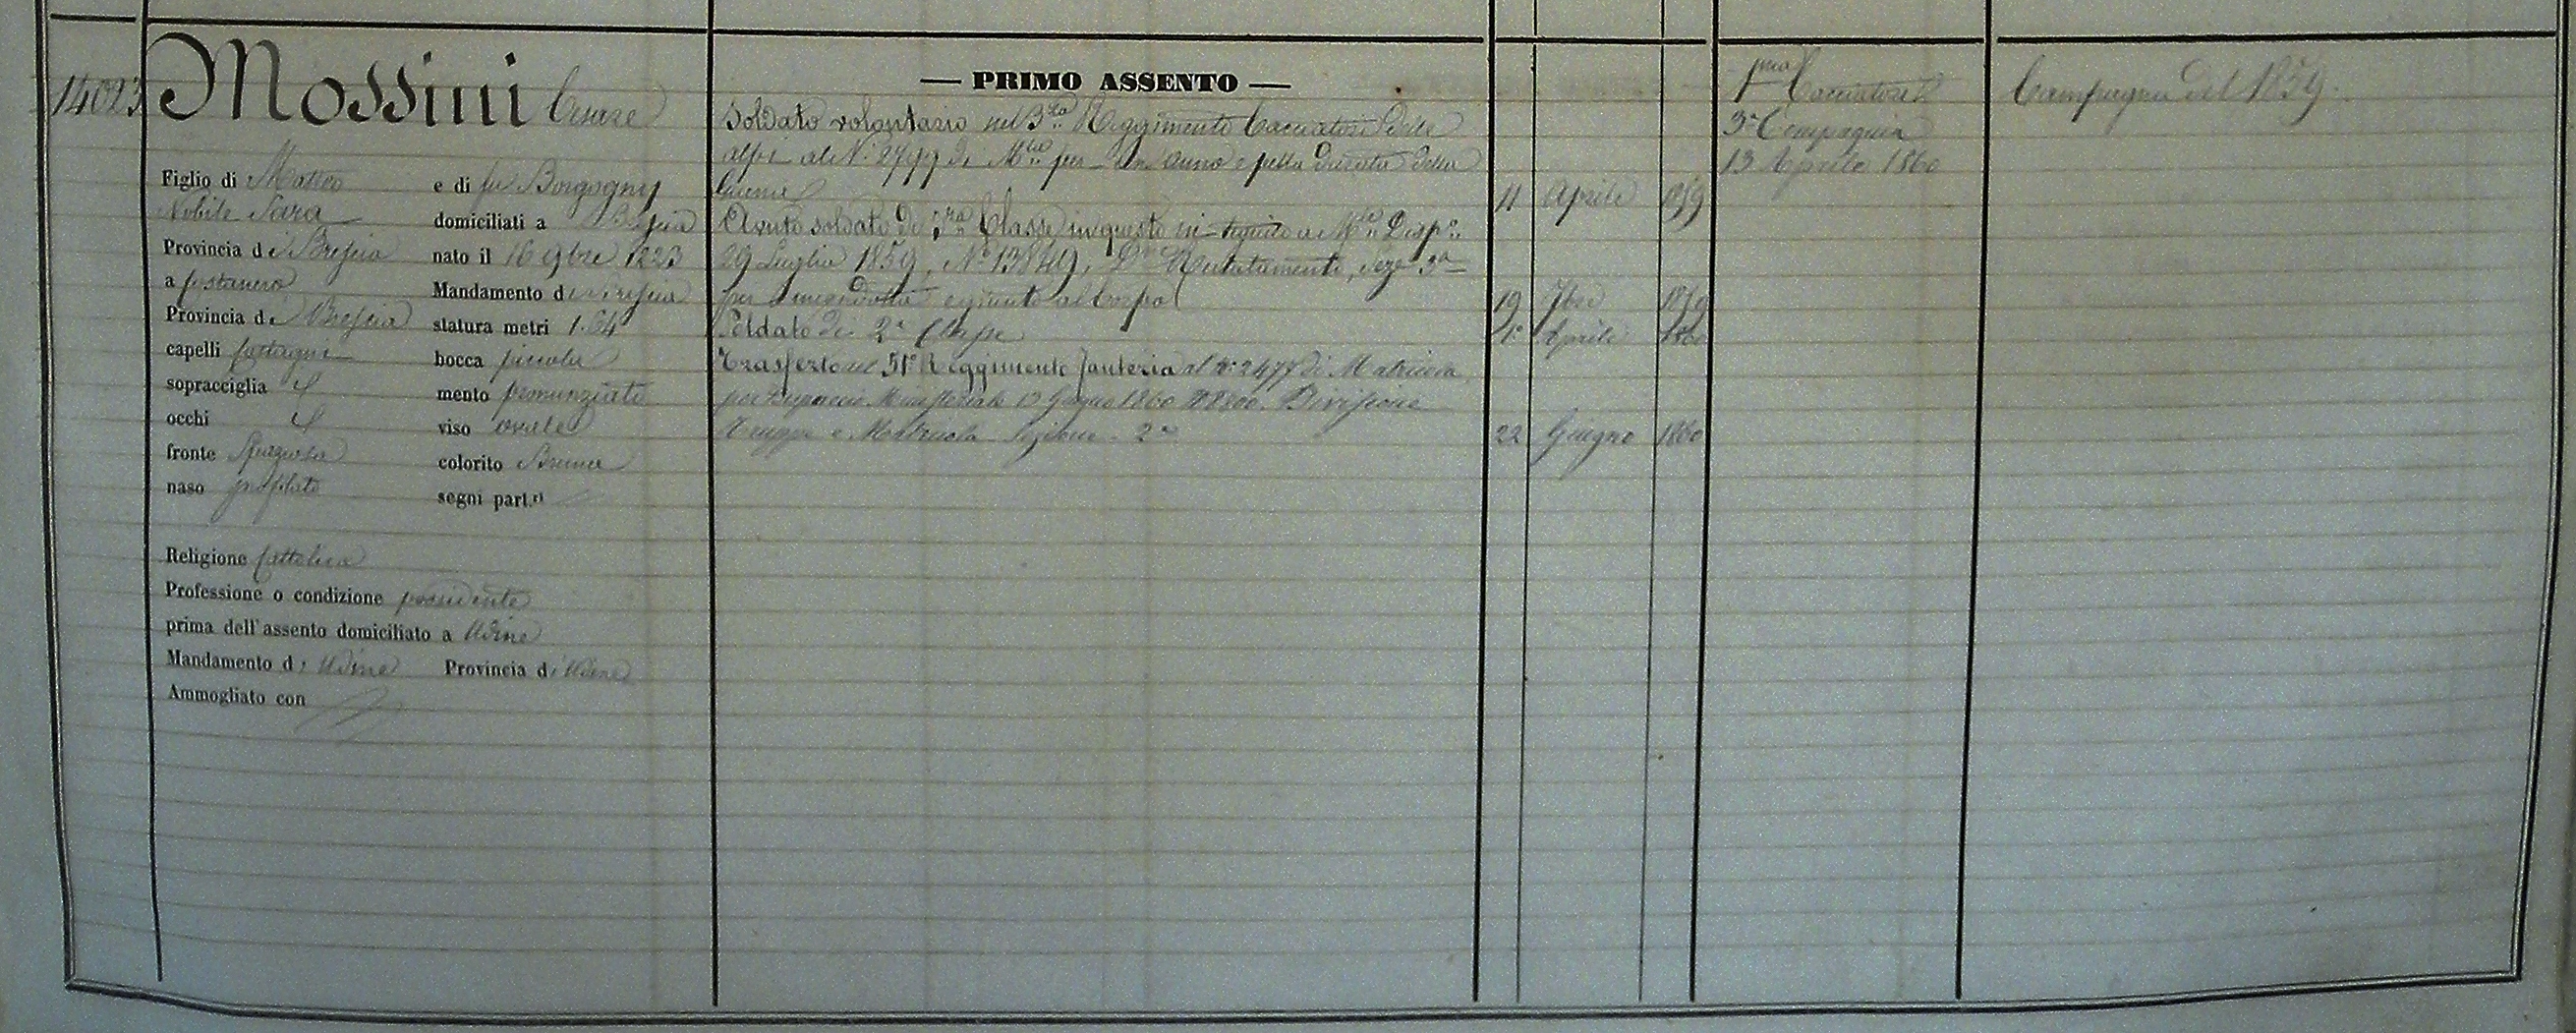 14023
Mossini Cesare
Figlio di Matteo e di fu Borgogny
Nobile Sara domiciliati a Brescia
Provincia di Brescia nato il 16 9bre 1823
a Mandamento di Brescia
Provincia di Brescia statura metri 1.64
capelli castagni bocca piccola
sopracciglia mento pronunziato
occhi viso ovale
fronte Spaziosa colorito Bruno
naso profilato segni part.ri
Religione Cattolica
Professione o condizione possidente
prima dell'assento domiciliato a Udine
Mandamento di Udine Provincia di Udine
Ammogliato con
— PRIMO ASSENTO —
Soldato volontario nel 3zo Reggimento Cacciatori delle
alpi al N. 2799 di Mla per un anno e pella durata della
Guerra 11 Aprile 1859
soldato di Classe in questo in seguito a Mle Dispo
29 Luglio 1859, No 13849, Reclutamento, Seze 3a
per e giunto al Corpo 19 7bre 1859
Soldato di 2a Classe 1o Aprile 1860
Trasferto nel 51o Reggimento fanteria al No 2477 di Matricola
per Dispaccio Ministeriale 13 Giugno 1860 No 8800. Divisione
Truppa e Matricola Sezione 2a 22 Giugno 1860
1ma Cacciatori
3a Compagnia
13 Aprile 1860
Campagna del 1859.